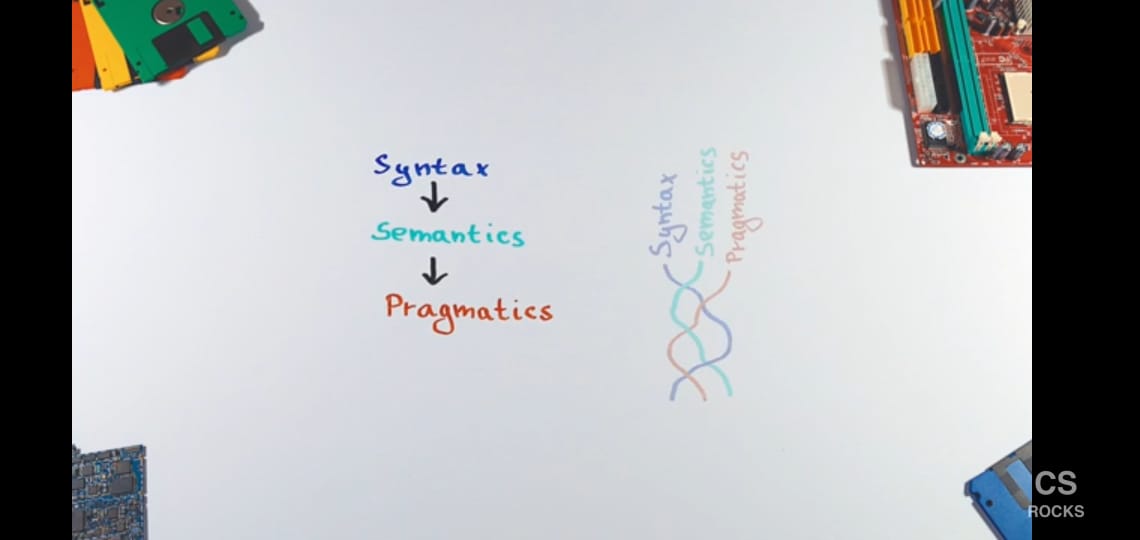 Syntax
Semantics
Pragmatics
Syntax
Semantics
Pragmatics
CS
ROCKS